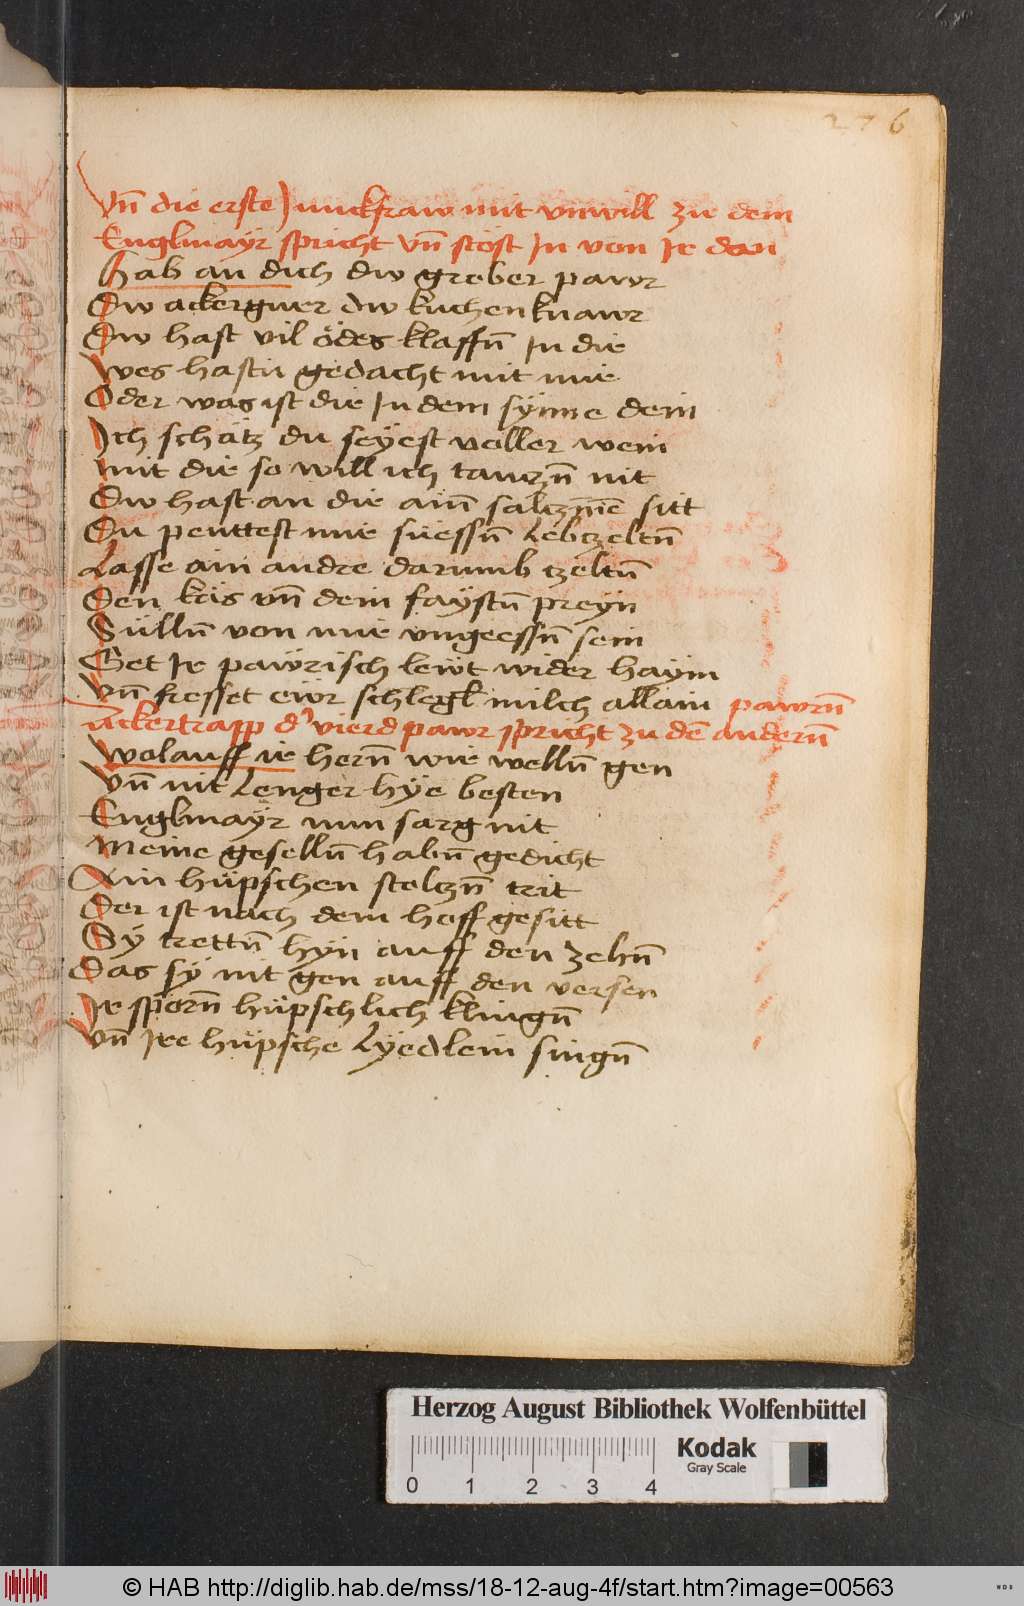 276
Vn̄ die erste Junckfraw mit vnwill zu dem
Englmayr spricht vn̄ stöst In von Ir dan
Hab an dich dw grober pawr
Dw ackergurr dw kuchenknawr
Dw hast vil ödes klaffn̄ In dir
Wes hastu gedacht mit mir
Oder was ist dir In dem synne dein
Ich schätz du seyest voller wein
mit dir so will ich tanczn̄ nit
Dw hast an dir ain̄ salczn̄ sitt
Du peuttest mir süessn̄ Lebczeltn̄
Lasse ain andre darumb czeltn̄
Den käs vn̄ dein faystn̄ preyn
Sülln̄ von mir vngeessn̄ sein
Get Ir päwrisch lewt wider haym
Vn̄ fresset ewr schlegl milch allain pawrn̄
Ackertrapp d' vierd pawr spricht zu dē andern̄
Wolauff ir hern̄ wie welln̄ gen
Vn̄ nit Lenger hye besten
Englmayr nun sarg nit
Meine geselln̄ habn̄ gedicht
Ain hüpschen stolczn̄ trit
Der ist nach dem hoff gesitt
Sy trettn̄ hyn auff den zehn̄
Das sy nit gen auff den versen
Ir sporn̄ hüpschlich klingn̄
Vn̄ Ire hüpsche Lyedlein singn̄
Herzog August Bibliothek Wolfenbüttel
Kodak
Gray Scale
0 1 2 3 4
© HAB http://diglib.hab.de/mss/18-12-aug-4f/start.htm?image=00563